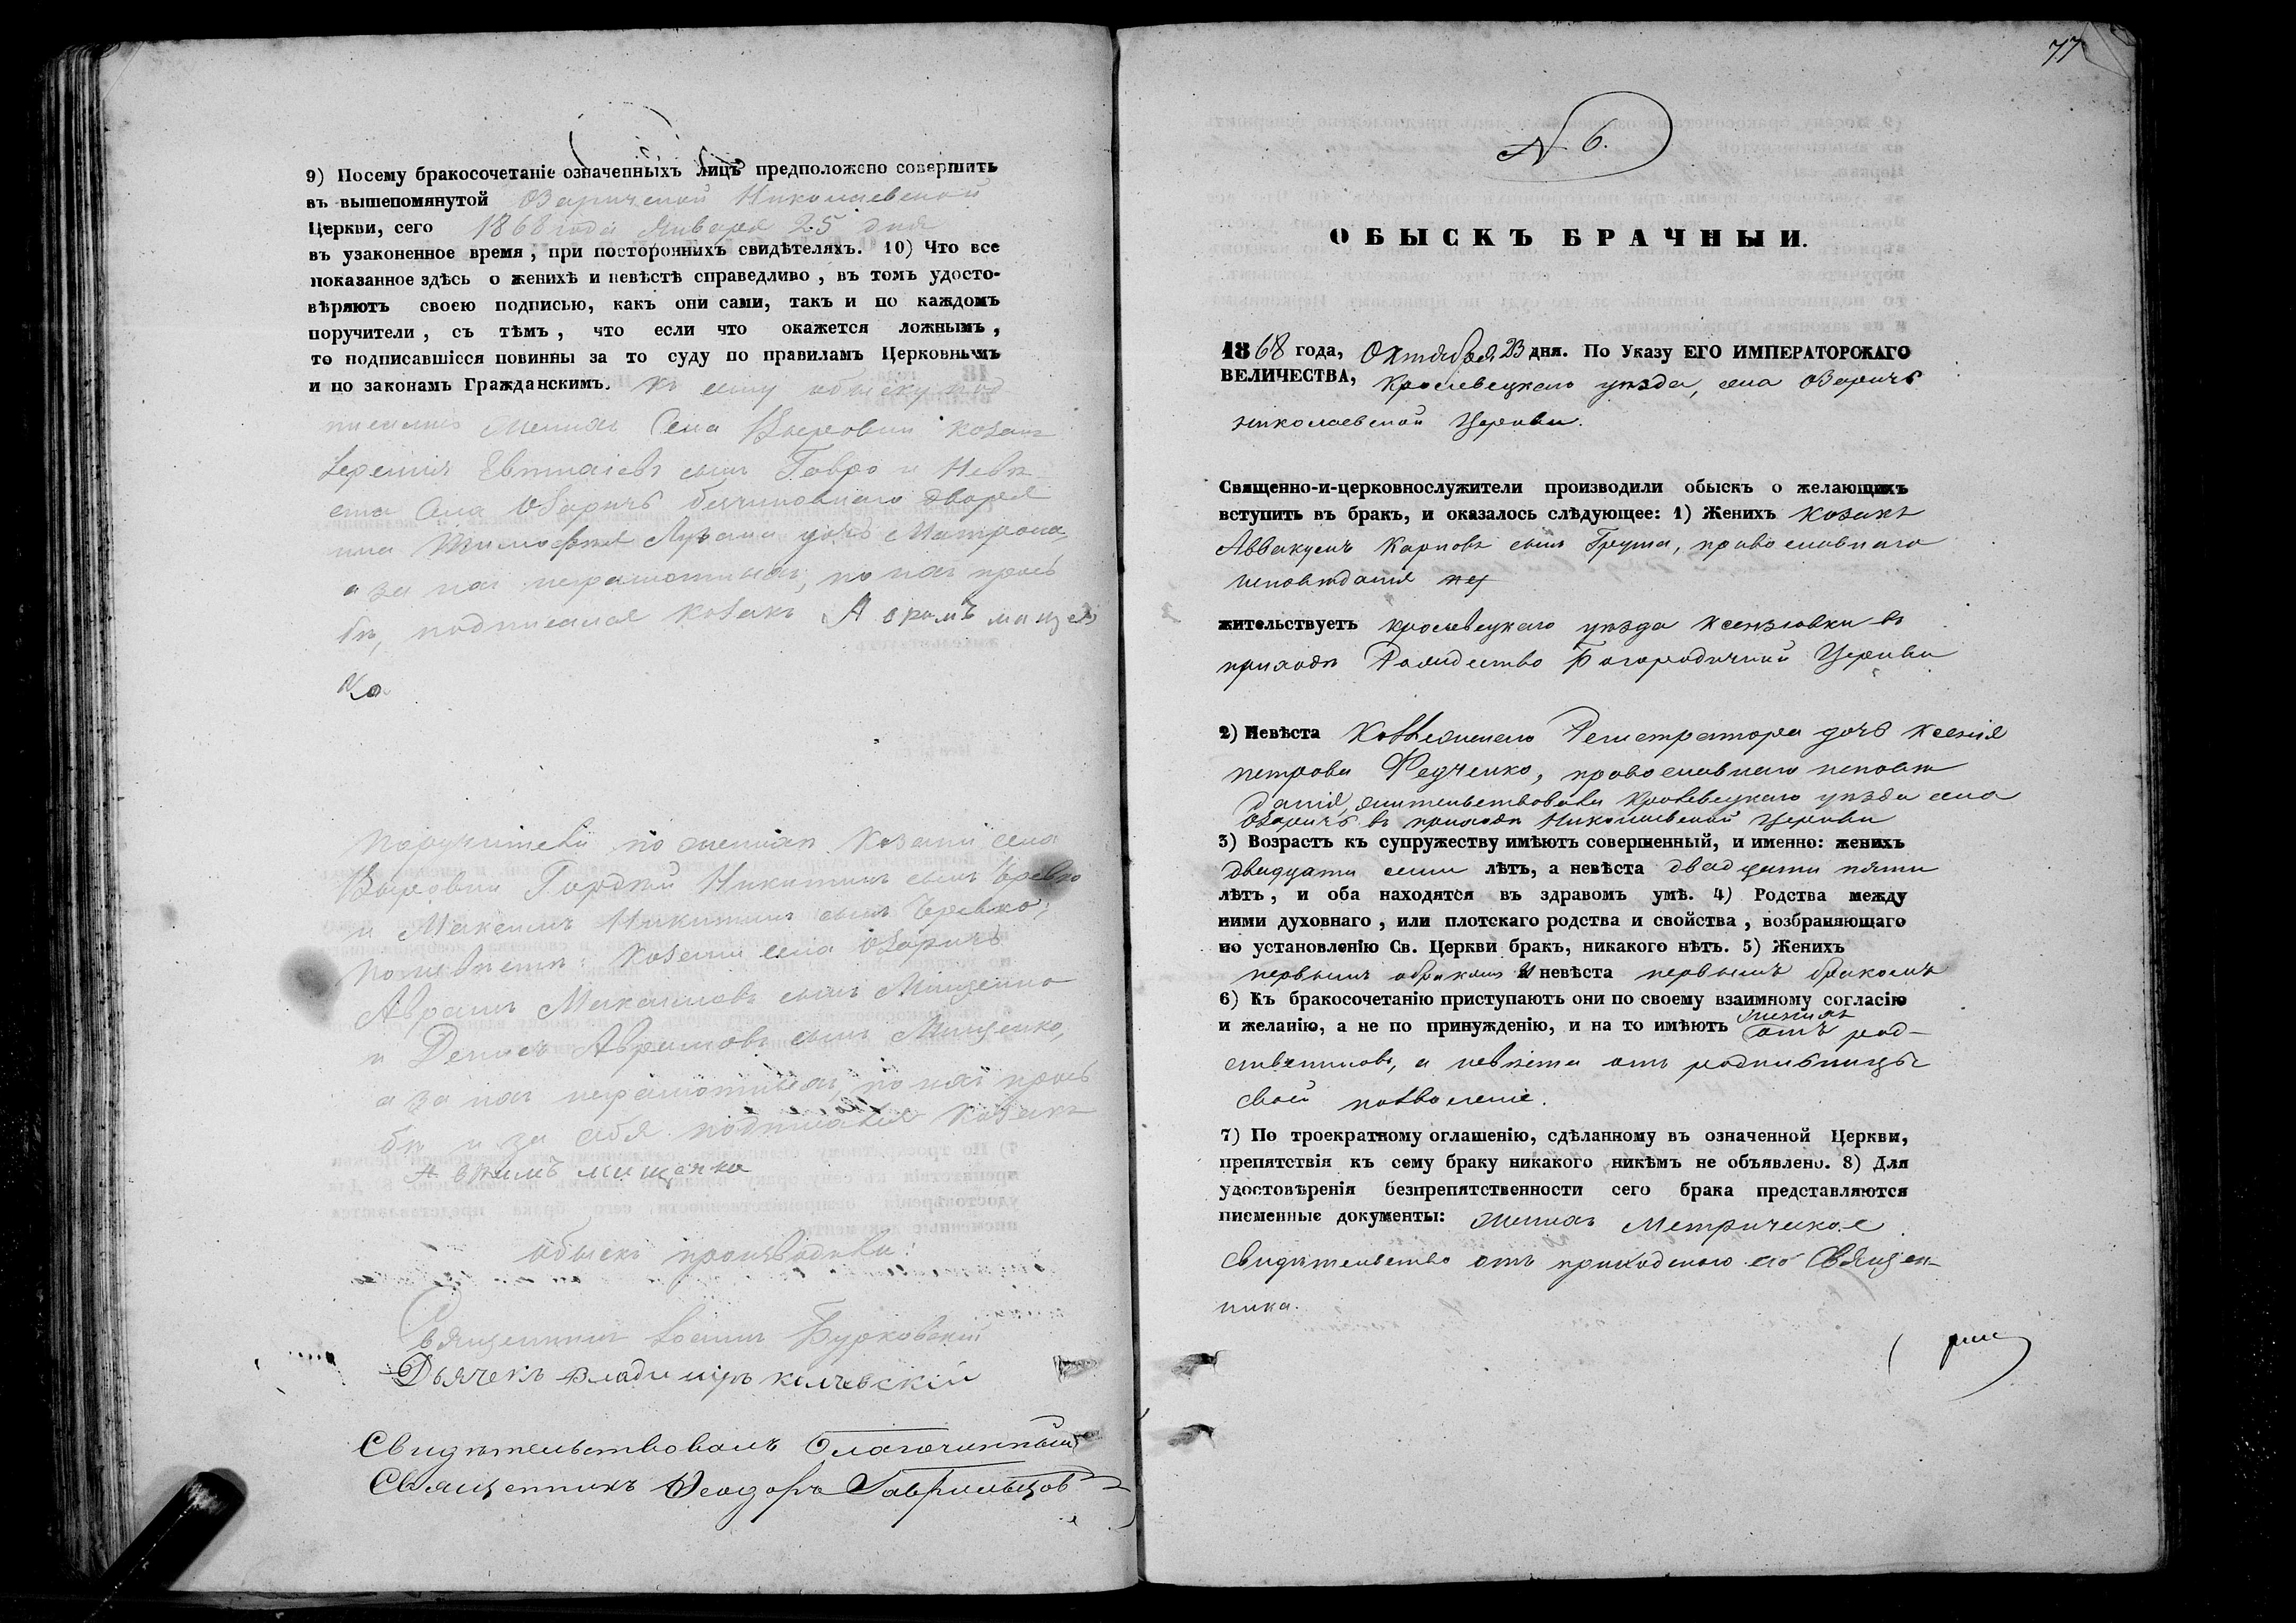 9) Посему бракосочетаніе означенныхъ лицъ предположено совершить
въ вышепомянутой Озаричской Николаевской
Церкви, сего 1868 года Января 25 дня
въ узаконенное время, при постороннихъ свидѣтеляхъ. 10) Что все
показанное здѣсь о женихѣ и невѣстѣ справедливо, въ томъ удосто-
вѣряютъ своею подписью, какъ они сами, такъ и по каждомъ
поручители, съ тѣмъ, что если что окажется ложнымъ,
то подписавшіеся повинны за то суду по правиламъ Церковнымъ
и по законамъ Гражданскимъ. Къ сему обыску под
писались женихъ Села Выровки козакъ
Евтихіевъ сынъ и Невѣ
ста Села Озаричъ дворя
нина дочь Матрона,
а за ихъ неграмотныхъ, по ихъ прось
бѣ, подписался козакъ Аврамъ мащен
ко
поручители по женихѣ козаки села
Выровки Гордѣй Никитинъ сынъ
и Максимъ Никитинъ сынъ
по невѣстѣ: козаки села Озаричъ
Аврамъ Максимовъ сынъ Мищенко
и Денисъ Аврамовъ сынъ Мищенко,
а за ихъ неграмотныхъ, по ихъ прось
бѣ и за себя подписался козакъ
Аврамъ мищенко
обыскъ производили:
Священникъ Іоаннъ Бурковскій
Дьячекъ Владиміръ
Свидѣтельствовалъ благочинный
Священникъ Ѳеодоръ Гаврильцов
77
N 6.
ОБЫСКЪ БРАЧНЫЙ.
1868 года, Октября 23 дня. По Указу ЕГО ИМПЕРАТОРСКАГО
ВЕЛИЧЕСТВА, Кролевецкаго уѣзда, села Озаричъ
николаевской Церкви.
Священно-и-церковнослужители производили обыскъ о желающихъ
вступить въ бракъ, и оказалось слѣдующее: 1) Женихъ козакъ
Аввакумъ Карповъ сынъ Груша, православнаго
исповѣданія
жительствуетъ кролевецкаго уѣзда Ксензовки въ
приходѣ Рождество Богородичной Церкви
2) Невѣста Коллежскаго Регистратора дочь Ксенія
петрова Федченко, православнаго исповѣ
данія, жительствовала Кролевецкаго уѣзда села
Озаричъ въ приходѣ Николаевской Церкви
3) Возрастъ къ супружеству имѣютъ совершенный, и именно: женихъ
двадцати семи лѣтъ, а невѣста двадцати пяти
лѣтъ, и оба находятся въ здравомъ умѣ. 4) Родства между
ними духовнаго, или плотскаго родства и свойства, возбраняющаго
по установленію Св. Церкви бракъ, никакого нѣтъ. 5) Женихъ
первымъ бракомъ и невѣста первымъ бракомъ
6) Къ бракосочетанію приступаютъ они по своему взаимному согласію
и желанію, а не по принужденію, и на то имѣютъ женихъ отъ род-
ственниковъ, а невѣста отъ
свои позволеніе.
7) По троекратному оглашенію, сдѣланному въ означенной Церкви,
препятствія къ сему браку никакого никѣмъ не объявлено. 8) Для
удостовѣренія безпрепятственности сего брака представляются
писменные документы: женихъ Метрическое
свидѣтельство отъ приходскаго его Священ-
ника.